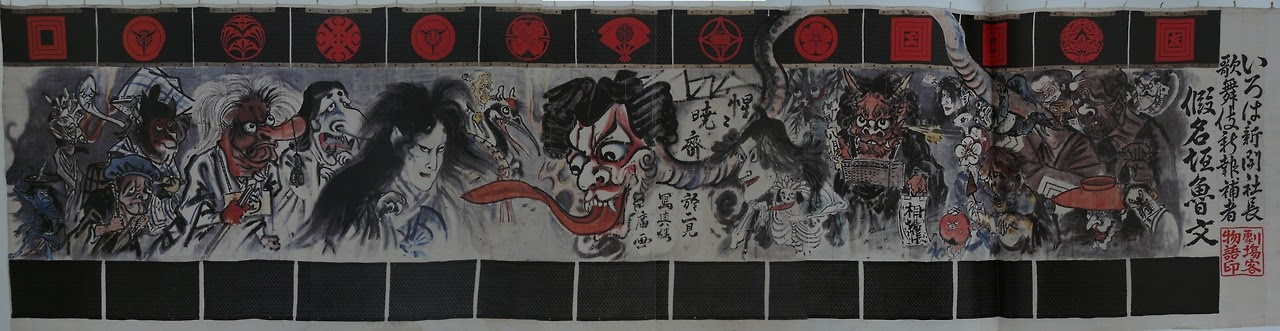 いろは新聞社長
歌舞伎新報補者
假名垣魯文
劇場客
物語印
惺〻
暁斎
於二見